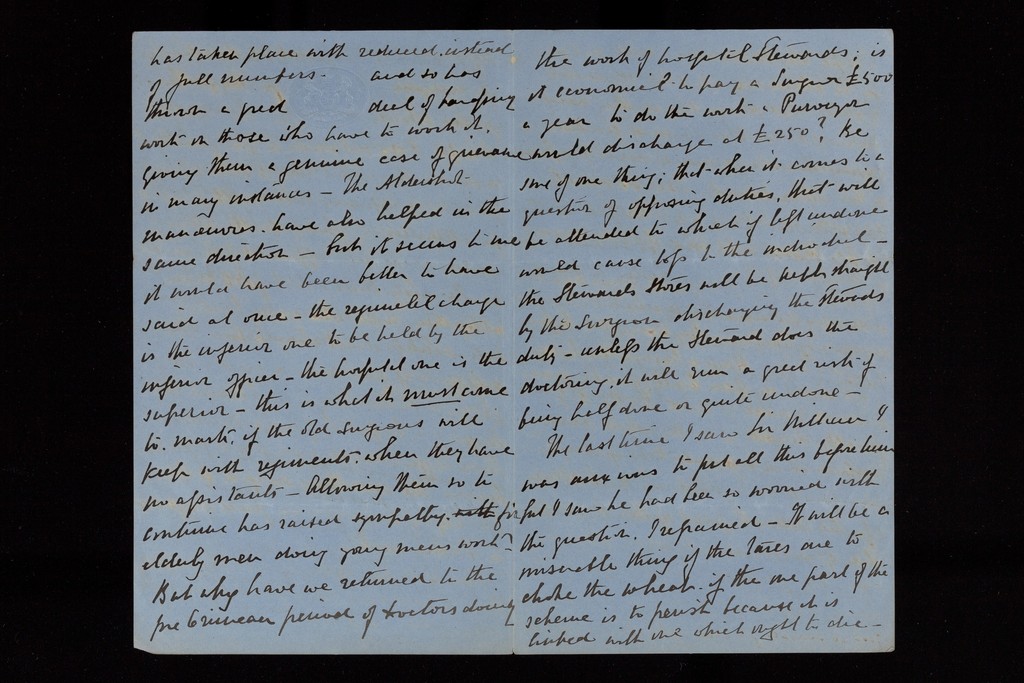 has taken place with reduced, instead
of full numbers - and so has
thrown a great deal of harassing
work on those who have to work it,
giving them a genuine case of grievance
in many instances - The Aldershot
manœuvres, have also helped in the
same direction - But it seems to me
it would have been better to have
said at once - the regimental charge
is the inferior one to be held by the
inferior officer - the hospital one is the
superior - this is what it must come
to, mark, if the old surgeons will
keep with regiments, when they have
no assistants - Allowing them so to
continue has raised sympathy. with for
elderly men doing young mens work?
But why have we returned to the
pre Crimean period of Doctors doing
the work of hospital Stewards; is
it economical to pay a Surgeon £500
a year to do the work a Purveyor
would discharge at £250? Be
sure of one thing; that when it comes to a
question of opposing duties, that will
be attended to which if left undone
would cause loss to the individual -
the Stewards Stores will be kept straight
by the Surgeon discharging the Stewards
duty - unless the Steward does the
doctoring, it will run a great risk of
being half done or quite undone -
The last time I saw Sir William I
was anxious to put all this before him
but I saw he had been so worried with
the question, I refrained - It will be a
miserable thing if the tares are to
choke the wheat. if the one part of the
scheme is to perish because it is
linked with one which ought to die -